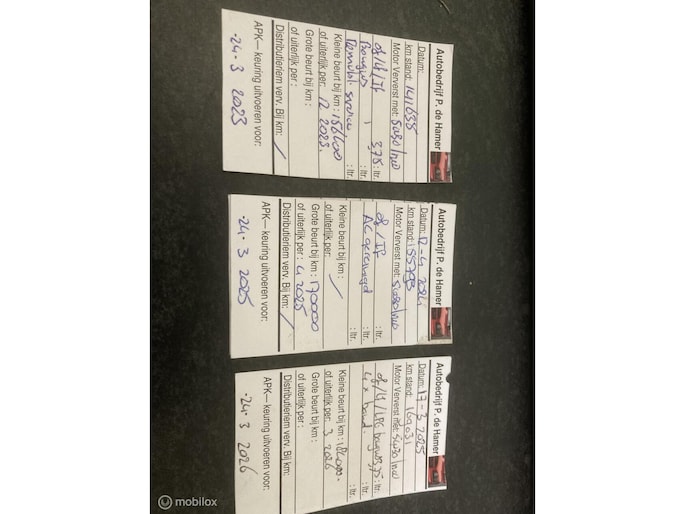 Autobedrijf P. de Hamer
Datum:
km stand: 141635
Motor Ververst met: 5w30/
of/lf/If 3,75 : ltr.
Bougies : ltr.
: ltr.
Kleine beurt bij km : 156600
of uiterlijk per: 12 2023.
Grote beurt bij km :
of uiterlijk per :
Distributieriem verv. Bij km: /
APK— keuring uitvoeren voor:
-24-3 2023
Autobedrijf P. de Hamer
Datum: 12-4 2024
km stand: 155793
Motor Ververst met: 5w30/
of/If : ltr.
AC gereinigd : ltr.
: ltr.
Kleine beurt bij km : /
of uiterlijk per:
Grote beurt bij km : 170000
of uiterlijk per : 4 2025
Distributieriem verv. Bij km: /
APK— keuring uitvoeren voor:
-24-3 2025
Autobedrijf P. de Hamer
Datum: 17-3-2025
km stand: 169031
Motor Ververst met: 5w30/
of/lf/LPG 3,75 : ltr.
4x band. : ltr.
: ltr.
Kleine beurt bij km : 184000-
of uiterlijk per: 3 2026
Grote beurt bij km :
of uiterlijk per :
Distributieriem verv. Bij km:
APK— keuring uitvoeren voor:
-24-3 2026
mobilox